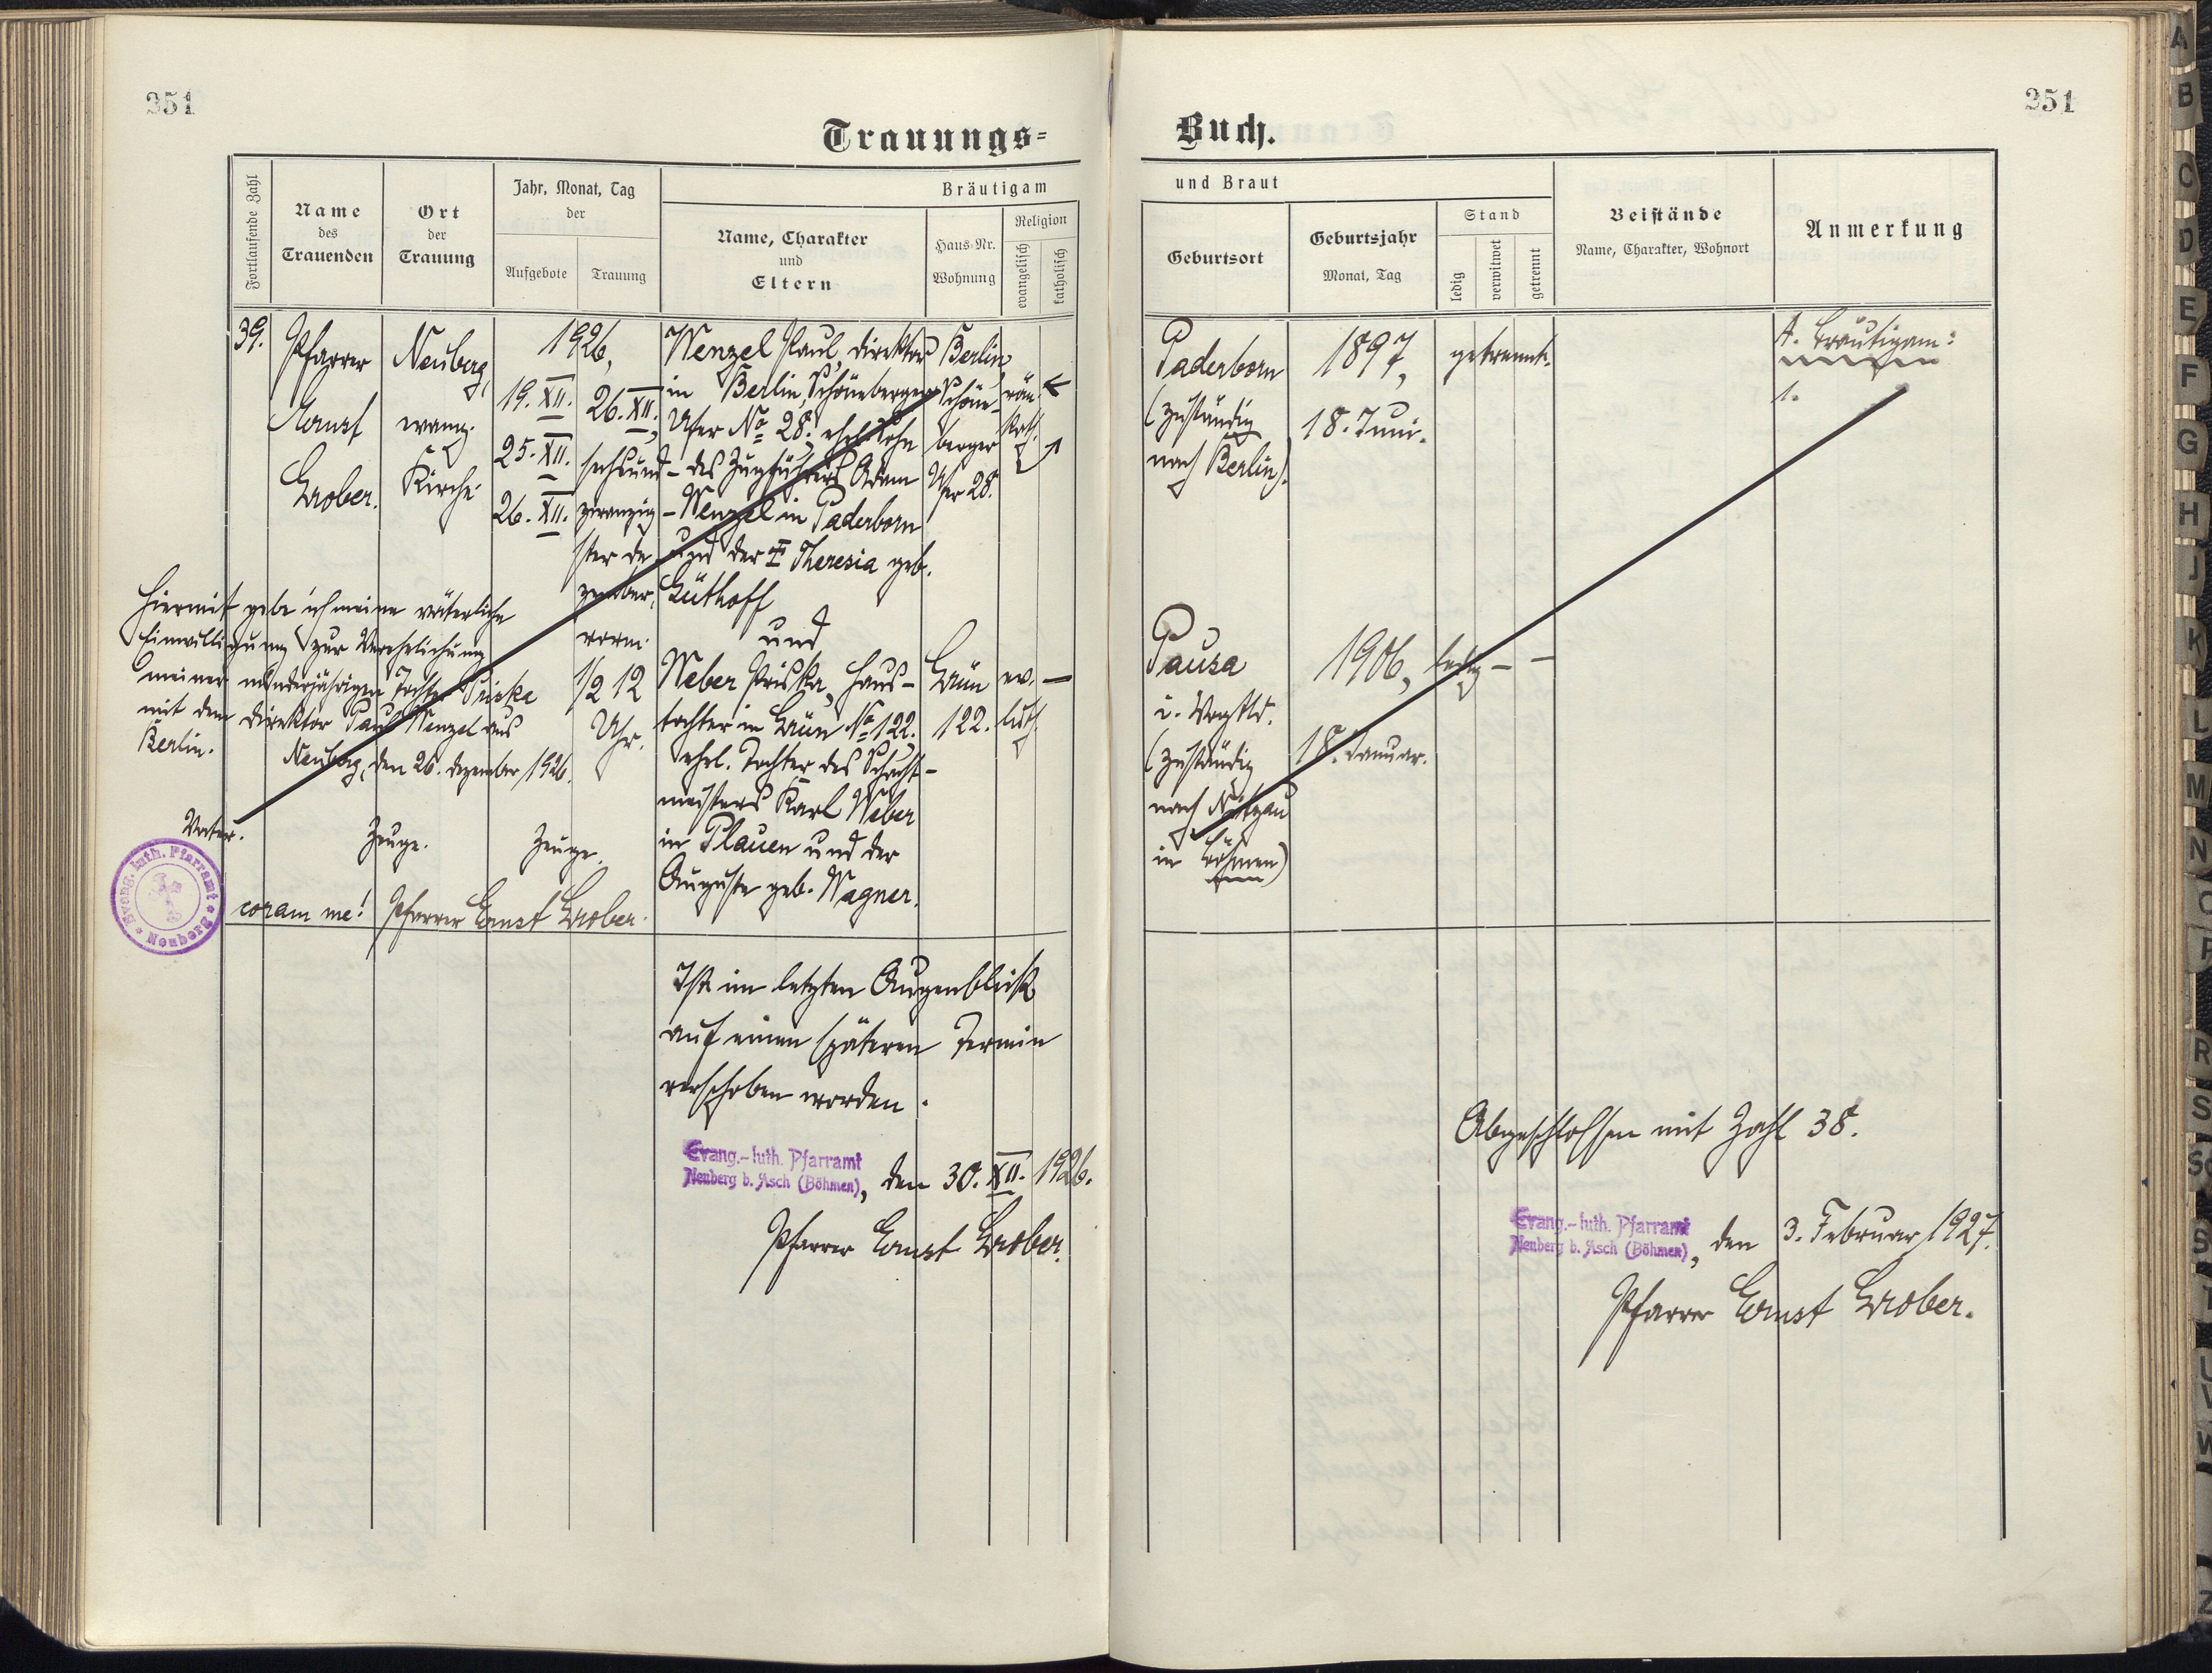 351
351
Trauungs=
Buch.
Fortlaufende Zahl
Name
des
Trauenden
Ort
der
Trauung
Jahr, Monat, Tag
der
Aufgebote
Trauung
Bräutigam
Name, Charakter
und
Eltern
Haus-Nr.
Wohnung
Religion
evangelisch
katholisch
und Braut
Geburtsort
Geburtsjahr
Monat, Tag
Stand
ledig
verwitwet
getrennt
Beistände
Name, Charakter, Wohnort
Anmerkung
39.
Pfarrer
Ernst
Grober.
Neuberg,
evang.
Kirche
1926,
19. XII.
25. XII.
26. XII.
26. XII.,
sechsund-
zwanzig-
ster De-
zember,
vorm.
1/2 12
Uhr.
Wenzel Paul, Direktor
in Berlin, Schöneberger
Ufer No 28, ehel. Sohn
des Zugführers Adam
Wenzel in Paderborn
und der Theresia geb.
Güthoff
und
Weber Priska, Haus-
tochter in Grün No 122.
ehel. Tochter des Schacht-
meisters Karl Weber
in Plauen und der
Auguste geb. Wagner.
Berlin,
Schöne-
berger
Ufer 28.
röm.
kath.
Grün
122.
ev. —
luth.
Paderborn
(zuständig
nach Berlin).
1897,
18. Juni.
getrennt.
A. Bräutigam:
1.
Pausa
i. Vogtld.
(zuständig
nach
in Böhmen)
1906,
18. Januar.
ledig — —
Hiermit gebe ich meine väterliche
Einwilligung zur Verehelichung
meiner minderjährigen Tochter Priska
mit dem Direktor Paul Wenzel aus
Berlin.
Neuberg, den 26. Dezember 1926.
Vater.
Zeuge.
Zeuge.
Evang. luth. Pfarramt * Neuberg *
coram me! Pfarrer Ernst Grober.
Ist im letzten Augenblick
auf einen späteren Termin
verschoben worden.
Evang.-luth. Pfarramt
Neuberg b. Asch (Böhmen), den 30. XII. 1926.
Pfarrer Ernst Grober.
Abgeschlossen mit Zahl 38.
Evang.-luth. Pfarramt
Neuberg b. Asch (Böhmen), den 3. Februar 1927.
Pfarrer Ernst Grober.
A
B
C
D
E
F
G
H
J
K
L
M
N
O
P
R
S
T
U
V
W
Z